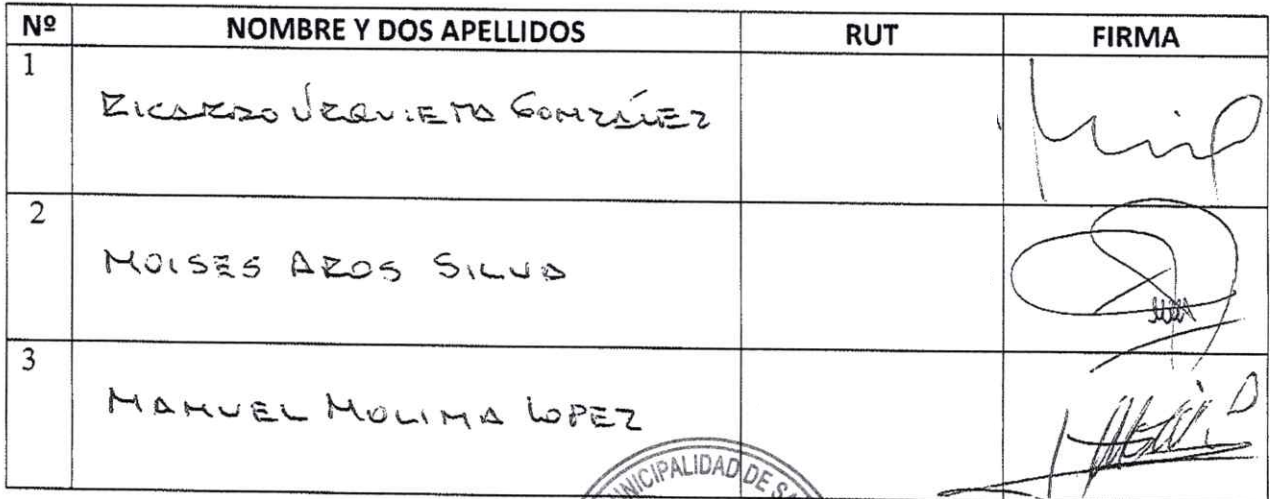 Nº NOMBRE Y DOS APELLIDOS RUT FIRMA
1 RICARDO URQUIETA GONZÁLEZ
2 MOISES AROS SILVA
3 MANUEL MOLINA LOPEZ
NICIPALIDAD DE SA